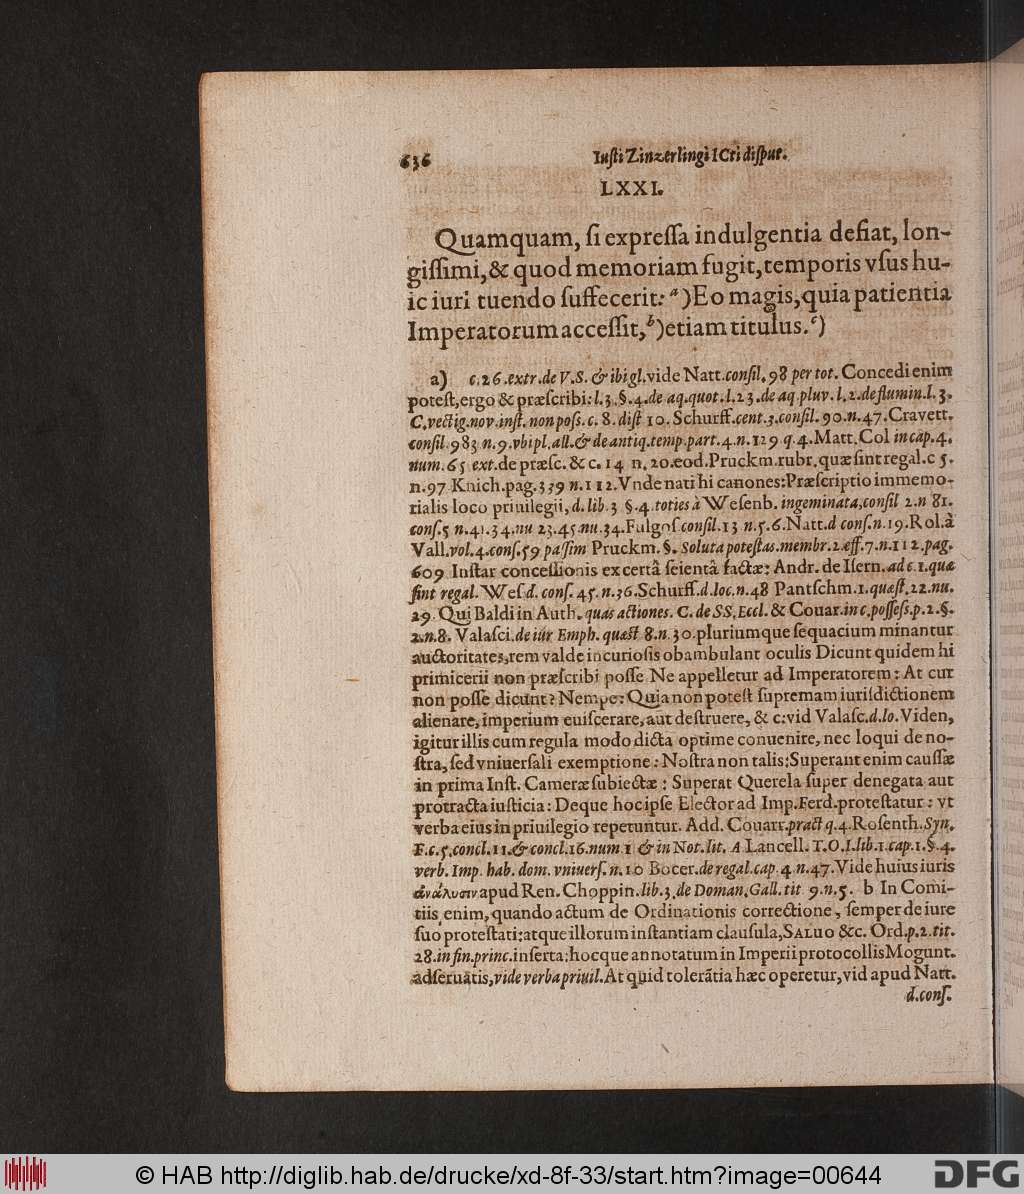 636 Iusti Zinzerlingi ICti disput.
LXXI.
Quamquam, si expressa indulgentia defiat, lon-
gissimi, & quod memoriam fugit, temporis vsus hu-
ic iuri tuendo suffecerit: a) Eo magis, quia patientia
Imperatorum accessit, b) etiam titulus. c)
a) c. 26. extr. de V.S. & ibi gl. vide Natt. consil. 98 per tot. Concedi enim
potest, ergo & præscribi: l. 3. §. 4. de aq. quot. l. 23. de aq pluv. l. 2. de flumin. l. 3.
C. vectig. nov. inst. non poss. c. 8. dist 10. Schurff. cent. 3. consil. 90. n. 47. Cravett.
consil. 983 n. 9. vbi pl. all. & de antiq. temp. part. 4. n. 129 q. 4. Matt. Col in cap. 4.
num. 65 ext. de præsc. & c. 14 n. 20. eod. Pruckm. rubr. quæ sint regal. c 5.
n. 97 Knich. pag. 339 n. 112. Vnde nati hi canones: Præscriptio immemo-
rialis loco priuilegii, d. lib. 3 §. 4. toties à Wesenb. ingeminata, consil 2. n 81.
cons. 5 n. 41. 34. nu 23. 45. nu. 34. Fulgos consil. 13 n. 5. 6. Natt. d cons. n. 19. Rol. à
Vall. vol. 4. cons. 59 passim Pruckm. §. Soluta potestas. membr. 2. eff. 7. n. 112. pag.
609 Instar concessionis ex certâ scientâ factæ: Andr. de Isern. ad c. 1. quæ
sint regal. Wes d. cons. 45. n. 36. Schurff. d. loc. n. 48 Pantschm. 1. quæst. 22. nu.
29. Qui Baldi in Auth. quas actiones. C. de SS. Eccl. & Couar. in c. possess. p. 2. §.
2. n. 8. Valasci. de iur Emph. quæst 8. n. 30. pluriumque sequacium minantur
auctoritates, rem valde incuriosis obambulant oculis Dicunt quidem hi
primicerii non præscribi posse Ne appelletur ad Imperatorem: At cur
non posse dicunt? Nempe: Quia non potest supremam iurisdictionem
alienare, imperium euiscerare, aut destruere, & c: vid Valasc. d. lo. Viden,
igitur illis cum regula modo dicta optime conuenire, nec loqui de no-
stra, sed vniuersali exemptione: Nostra non talis: Superant enim caussæ
in prima Inst. Cameræ subiectæ: Superat Querela super denegata aut
protracta iusticia: Deque hoc ipse Elector ad Imp. Ferd. protestatur: vt
verba eius in priuilegio repetuntur. Add. Couarr. pract q. 4. Rosenth. Syn.
F. c. 5. concl. 11. & concl. 16. num 1 & in Not. lit. A Lancell. T. O. I. lib. 1. cap. 1. §. 4.
verb. Imp. hab. dom. vniuers. n. 10 Bocer. de regal. cap. 4. n. 47. Vide huius iuris
ἀνάλυσιν apud Ren. Choppin. lib. 3. de Doman. Gall. tit 9. n. 5. b In Comi-
tiis, enim, quando actum de Ordinationis correctione, semper de iure
suo protestati: atque illorum instantiam clausula, SALUO &c. Ord. p. 2. tit.
28. in fin. princ. inserta; hocque annotatum in Imperii protocollis Mogunt.
adseruatis, vide verba priuil. At quid tolerãtia hæc operetur, vid apud Natt.
d. cons.
© HAB http://diglib.hab.de/drucke/xd-8f-33/start.htm?image=00644
DFG